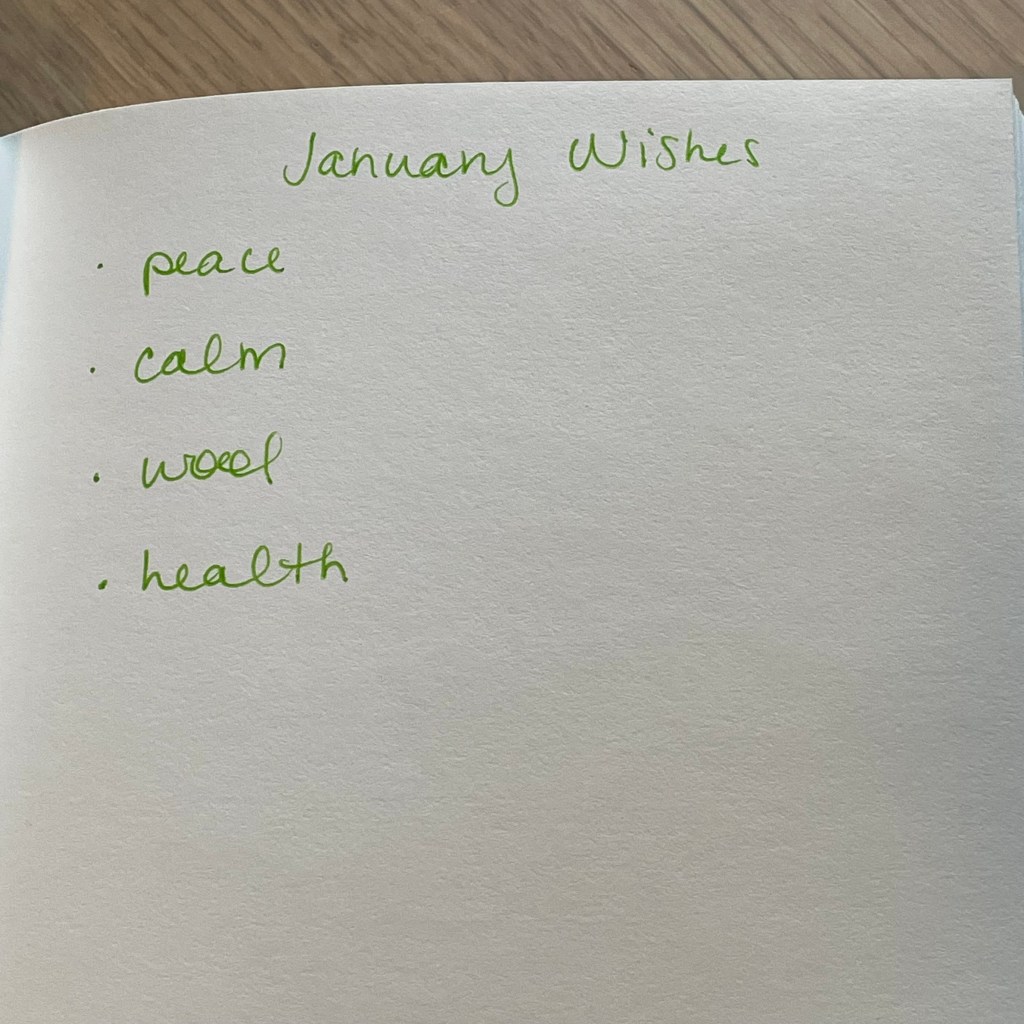 January Wishes
· peace
· calm
· wool
· health